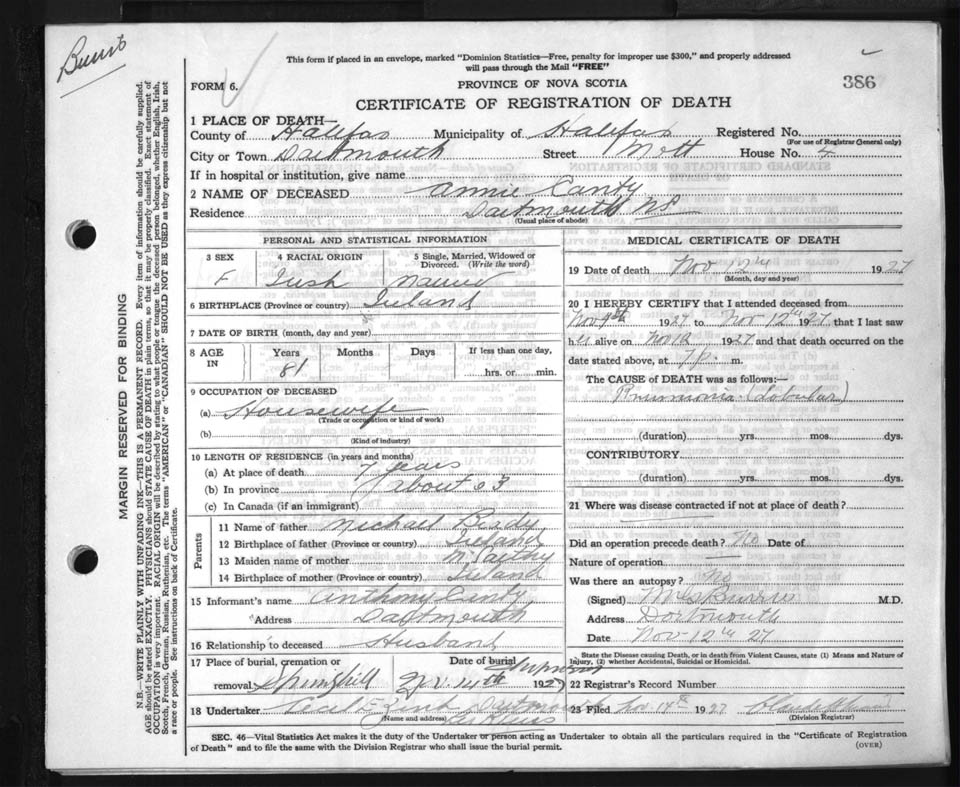 Burris
This form if placed in an envelope, marked "Dominion Statistics—Free, penalty for improper use $300," and properly addressed
will pass through the Mail "FREE"
FORM 6.
PROVINCE OF NOVA SCOTIA
386
CERTIFICATE OF REGISTRATION OF DEATH
MARGIN RESERVED FOR BINDING
N.B.—WRITE PLAINLY WITH UNFADING INK—THIS IS A PERMANENT RECORD. Every item of information should be carefully supplied.
AGE should be stated EXACTLY. PHYSICIANS should STATE CAUSE OF DEATH in plain terms, so that it may be properly classified. Exact statement of
OCCUPATION is very important. RACIAL ORIGIN will be described by stating to what people or tongue the deceased person belonged, whether English, Irish,
Scotch, French, German, Russian, Ruthenian, etc. The terms "AMERICAN" or "CANADIAN" SHOULD NOT BE USED as they express citizenship but not
a race or people. See instructions on back of Certificate.
1 PLACE OF DEATH—
County of Halifax Municipality of Halifax Registered No.
(For use of Registrar General only)
City or Town Dartmouth Street Mott House No. 4
If in hospital or institution, give name
2 NAME OF DECEASED Annie Canty
Residence Dartmouth NS
(Usual place of abode)
PERSONAL AND STATISTICAL INFORMATION
3 SEX 4 RACIAL ORIGIN 5 Single, Married, Widowed or Divorced. (Write the word)
F Irish Married
6 BIRTHPLACE (Province or country) Ireland
7 DATE OF BIRTH (month, day and year)
8 AGE IN Years Months Days If less than one day,
81 hrs. or min.
9 OCCUPATION OF DECEASED
(a) Housewife
(Trade or occupation or kind of work)
(b)
(Kind of industry)
10 LENGTH OF RESIDENCE (in years and months)
(a) At place of death 7 years
(b) In province about 63
(c) In Canada (if an immigrant)
Parents
11 Name of father Michael
12 Birthplace of father (Province or country) Ireland
13 Maiden name of mother McCarthy
14 Birthplace of mother (Province or country) Ireland
15 Informant's name Anthony Canty
Address Dartmouth
16 Relationship to deceased Husband
17 Place of burial, cremation or Date of burial
removal Springhill 14th 1927
18 Undertaker
(Name and address)
MEDICAL CERTIFICATE OF DEATH
19 Date of death Nov 12th 1927
(Month, day and year)
20 I HEREBY CERTIFY that I attended deceased from
Nov 9th 1927 to Nov 12th 1927, that I last saw
her alive on Nov 12 1927 and that death occurred on the
date stated above, at 7 p. m.
The CAUSE OF DEATH was as follows:—
Pneumonia (lobular)
(duration) yrs. mos. dys.
CONTRIBUTORY
(duration) yrs. mos. dys.
21 Where was disease contracted if not at place of death?
Did an operation precede death? No Date of
Nature of operation
Was there an autopsy? No
(Signed) Burris M.D.
Address Dartmouth
Date Nov 12th 27
State the Disease causing Death, or in death from Violent Causes, state (1) Means and Nature of
Injury, (2) whether Accidental, Suicidal or Homicidal.
22 Registrar's Record Number
23 Filed Nov 14th 1927
(Division Registrar)
SEC. 46—Vital Statistics Act makes it the duty of the Undertaker or person acting as Undertaker to obtain all the particulars required in the "Certificate of Registration
of Death" and to file the same with the Division Registrar who shall issue the burial permit.
(OVER)